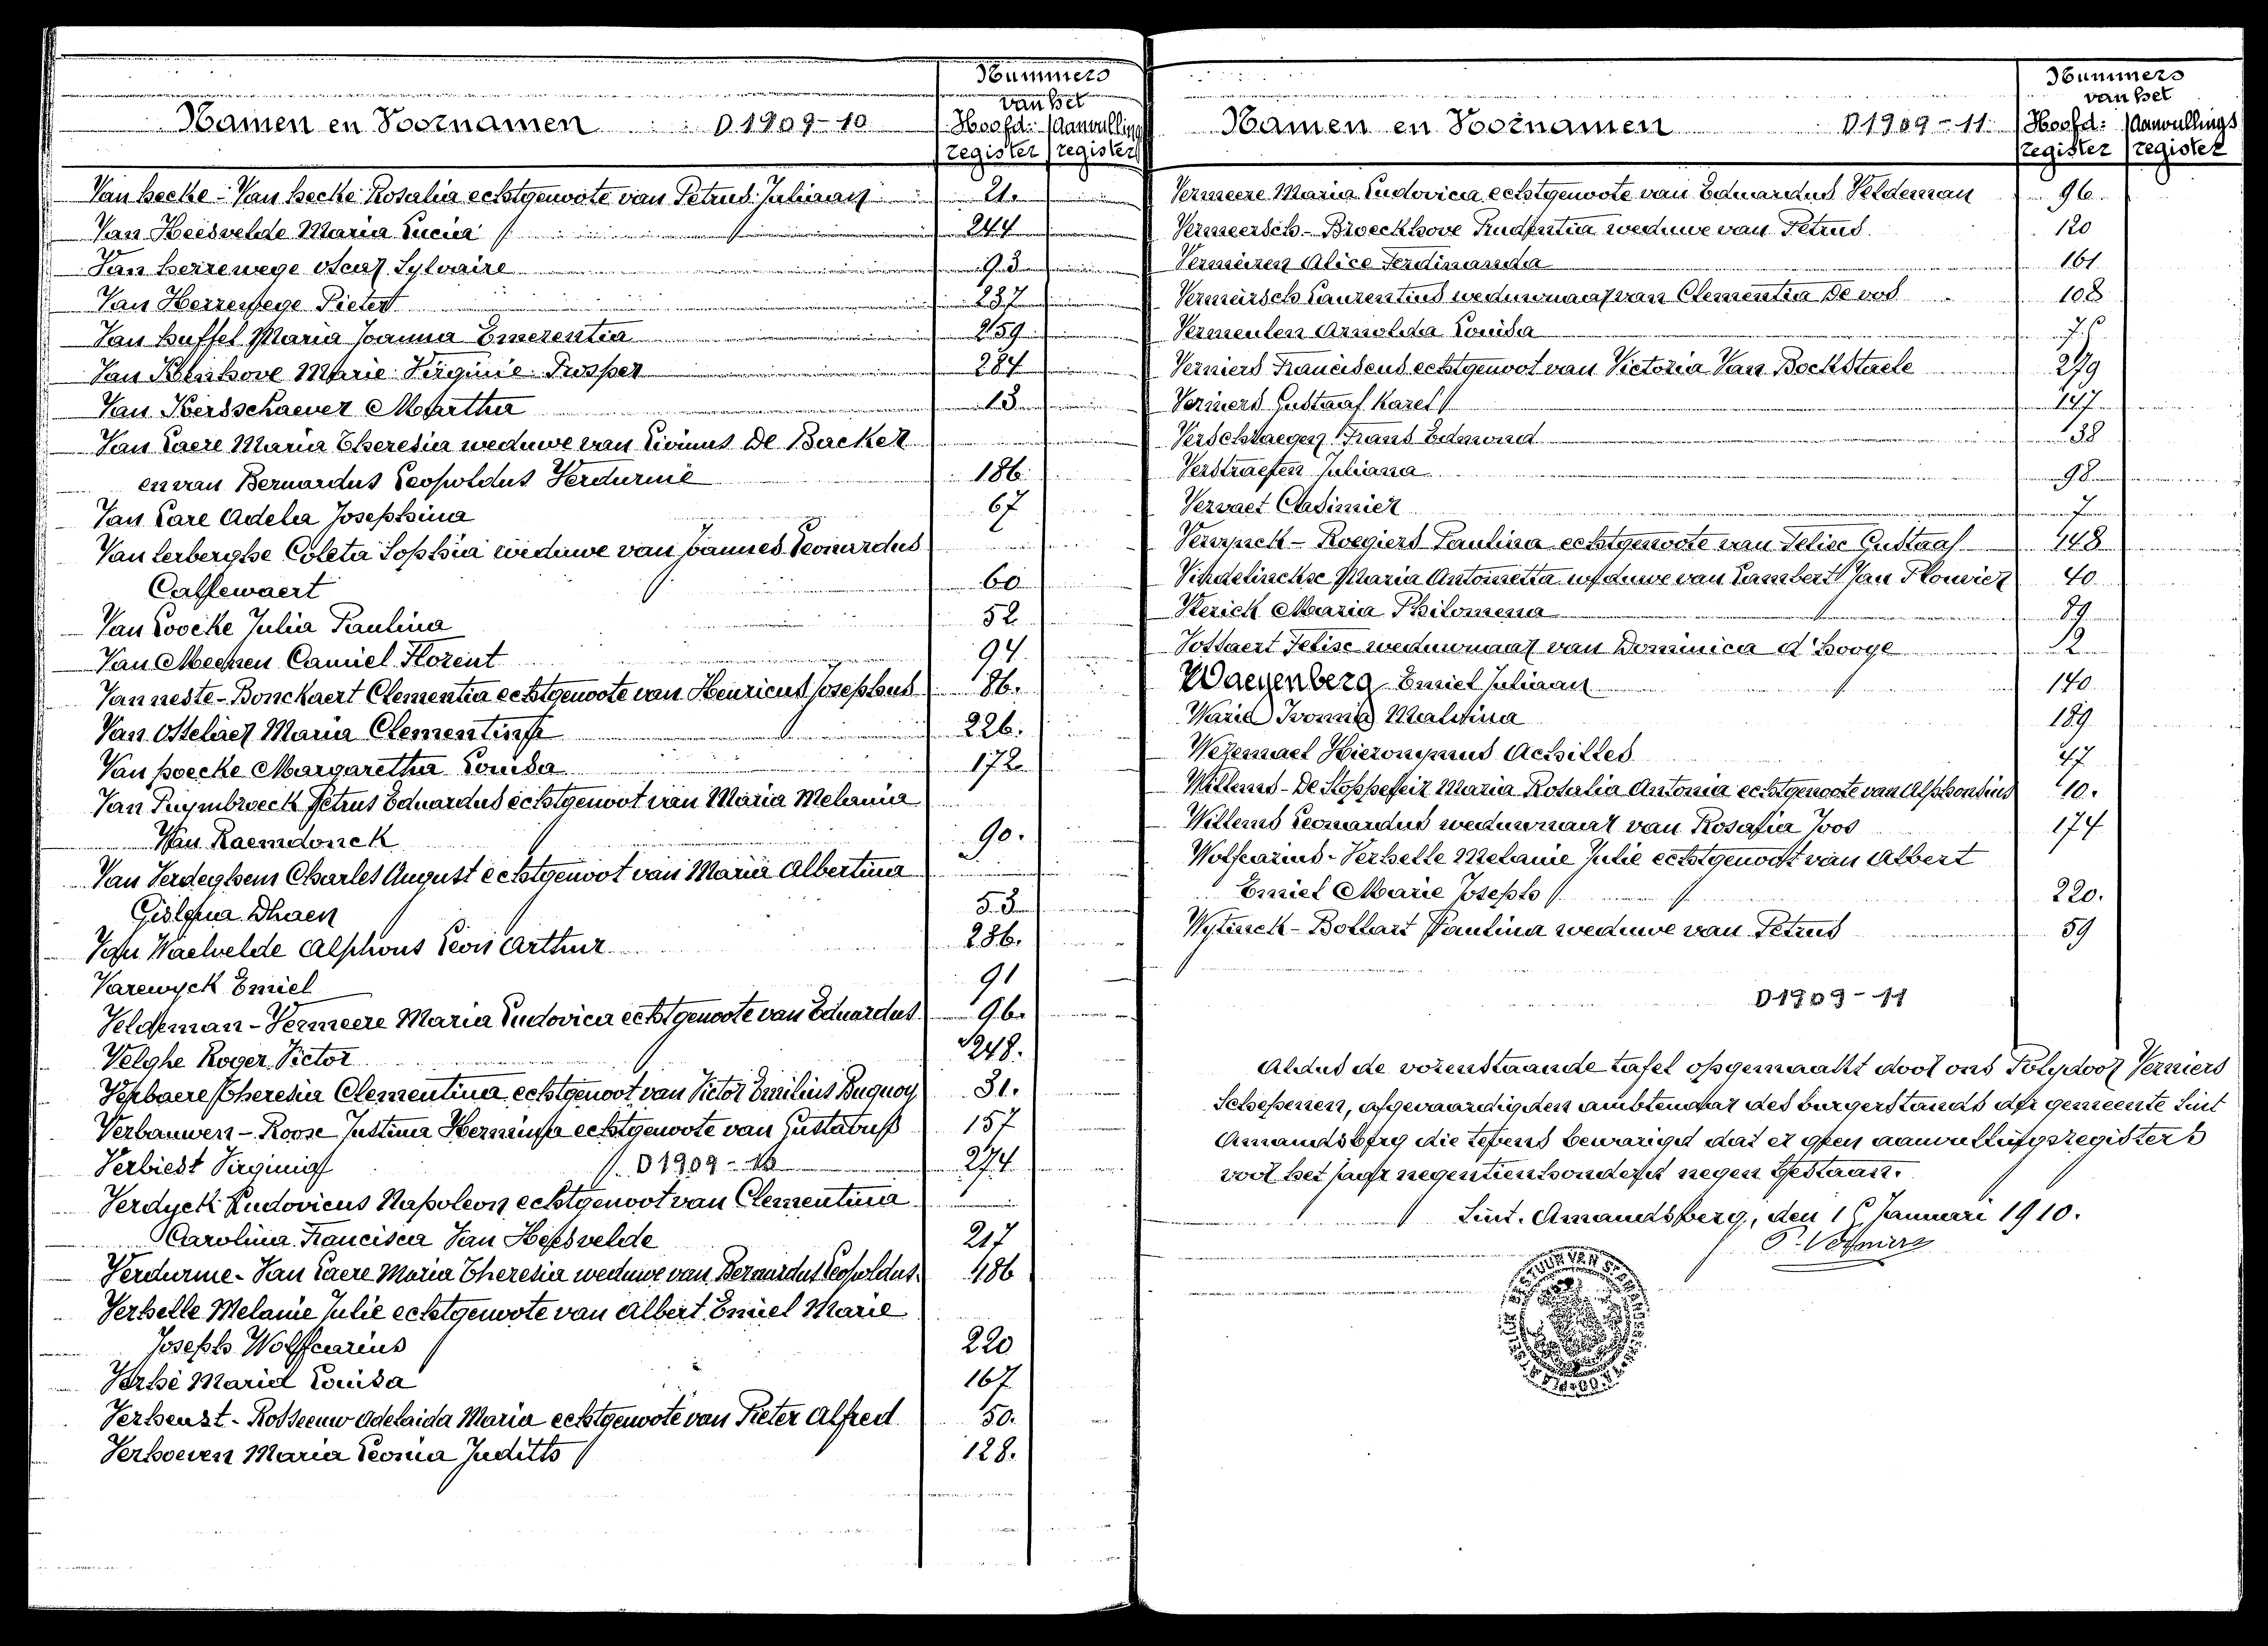 Nummers
van het
Namen en Voornamen D1909-10 Hoofd: Aanvullings
register register
Van hecke - Van hecke Rosalia echtgenoote van Petrus Juliaan 21.
Van Heesvelde Maria Lucia 244
Van herrewege Oscar Sylvaire 93
Van Herrewege Pieter 237
Van huffel Maria Joanna Emerentia 259
Van Kerkhove Marie Virginie Prosper 284
Van Kerdschaever Martha 13
Van Laere Maria Theresia weduwe van Livinus De Backer
en van Bernardus Leopoldus Verdurme 186.
Van Lare Adela Josephina 67
Van Lerberghe Coleta Sophia weduwe van Joannes Leonardus
Callewaert 60
Van Loocke Julia Paulina 52
Van Meenen Camiel Florent 94.
Van neste - Bonckaert Clementia echtgenoote van Henricus Josephus 86.
Van Ostelaer Maria Clementina 226.
Van poecke Margaretha Louisa 172
Van Puymbroeck Petrus Eduardus echtgenoot van Maria Melania
Van Raemdonck 90.
Van Verdeghem Charles August echtgenoot van Maria Albertina
Gislena Dhaen 53
Van Waelvelde Alphons Leon Arthur 236.
Varewyck Emiel 91
Veldeman - Vermeere Maria Ludovica echtgenoote van Eduardus 96.
Velghe Roger Victor 248.
Theresia Clementina echtgenoot van Victor Emilius Buquoy 31.
Verbauwen - Roose Justina Hermina echtgenoote van Gustavus 157
Verbiest Virginia D1909-10 274
Verdyck Ludovicus Napoleon echtgenoot van Clementina
Carolina Francisca Van Heesvelde 217
Verdurme - Van Laere Maria Theresia weduwe van Bernardus Leopoldus 186
Verhelle Melanie Julie echtgenoote van Albert Emiel Marie
Joseph Wolfcarius 220
Verhé Maria Louisa 167
Verheust - Rosseeuw Adelaida Maria echtgenoote van Pieter Alfred 50.
Verhoeven Maria Leonia Judith 128.
Nummers
van het
Namen en Voornamen D1909-11 Hoofd: Aanvullings
register register
Vermeere Maria Ludovica echtgenoote van Eduardus Veldeman 96
Vermeersch - Broeckhove Prudentia weduwe van Petrus 120
Vermeiren Alice Ferdinanda 161
Vermeirsch Laurentius weduwnaar van Clementia De vos 108
Vermeulen Arnolda Louisa
Verniers Franciscus echtgenoot van Victoria Van Bockstaele 279
Verniers Gustaaf Karel 147
Verschraegen Frans Edmond 138
Verstraeten Juliana 98
Vervaet Casimier 7
Vervynck - Roegiers Paulina echtgenoote van Felix Gustaaf 148
Vindelinckse Maria Antonetta weduwe van Lambert Jan Plouvier 40
Vlerick Maria Philomena 89
Vossaert Felise weduwnaar van Dominica d'hooge 12
Waeyenberg Emiel Juliaan 140
Marie Ivonna Malvina 189
Wezemael Hieronymus Achilles 47
Willems - De Stoppeleir Maria Rosalia Antonia echtgenoote van Alphonsius 10.
Willems Leonardus weduwnaar van Rosalia Joos 174
Wolfcarius - Verhelle Melanie Julie echtgenoot van Albert
Emiel Marie Joseph 220.
Wytinck - Bollart Paulina weduwe van Petrus 59
D1909-11
Aldus de vorenstaande tafel opgemaakt door ons Polydoor Verniers
Schepenen, afgevaardigden ambtenaar des burgerstands der gemeente Sint
Amandsberg die tevens bewarigd dat er geen aanvullingsregisters
voor het jaar negentienhonderd negen bestaan.
Sint. Amandsberg, den 15 Januari 1910.
P. Verniers